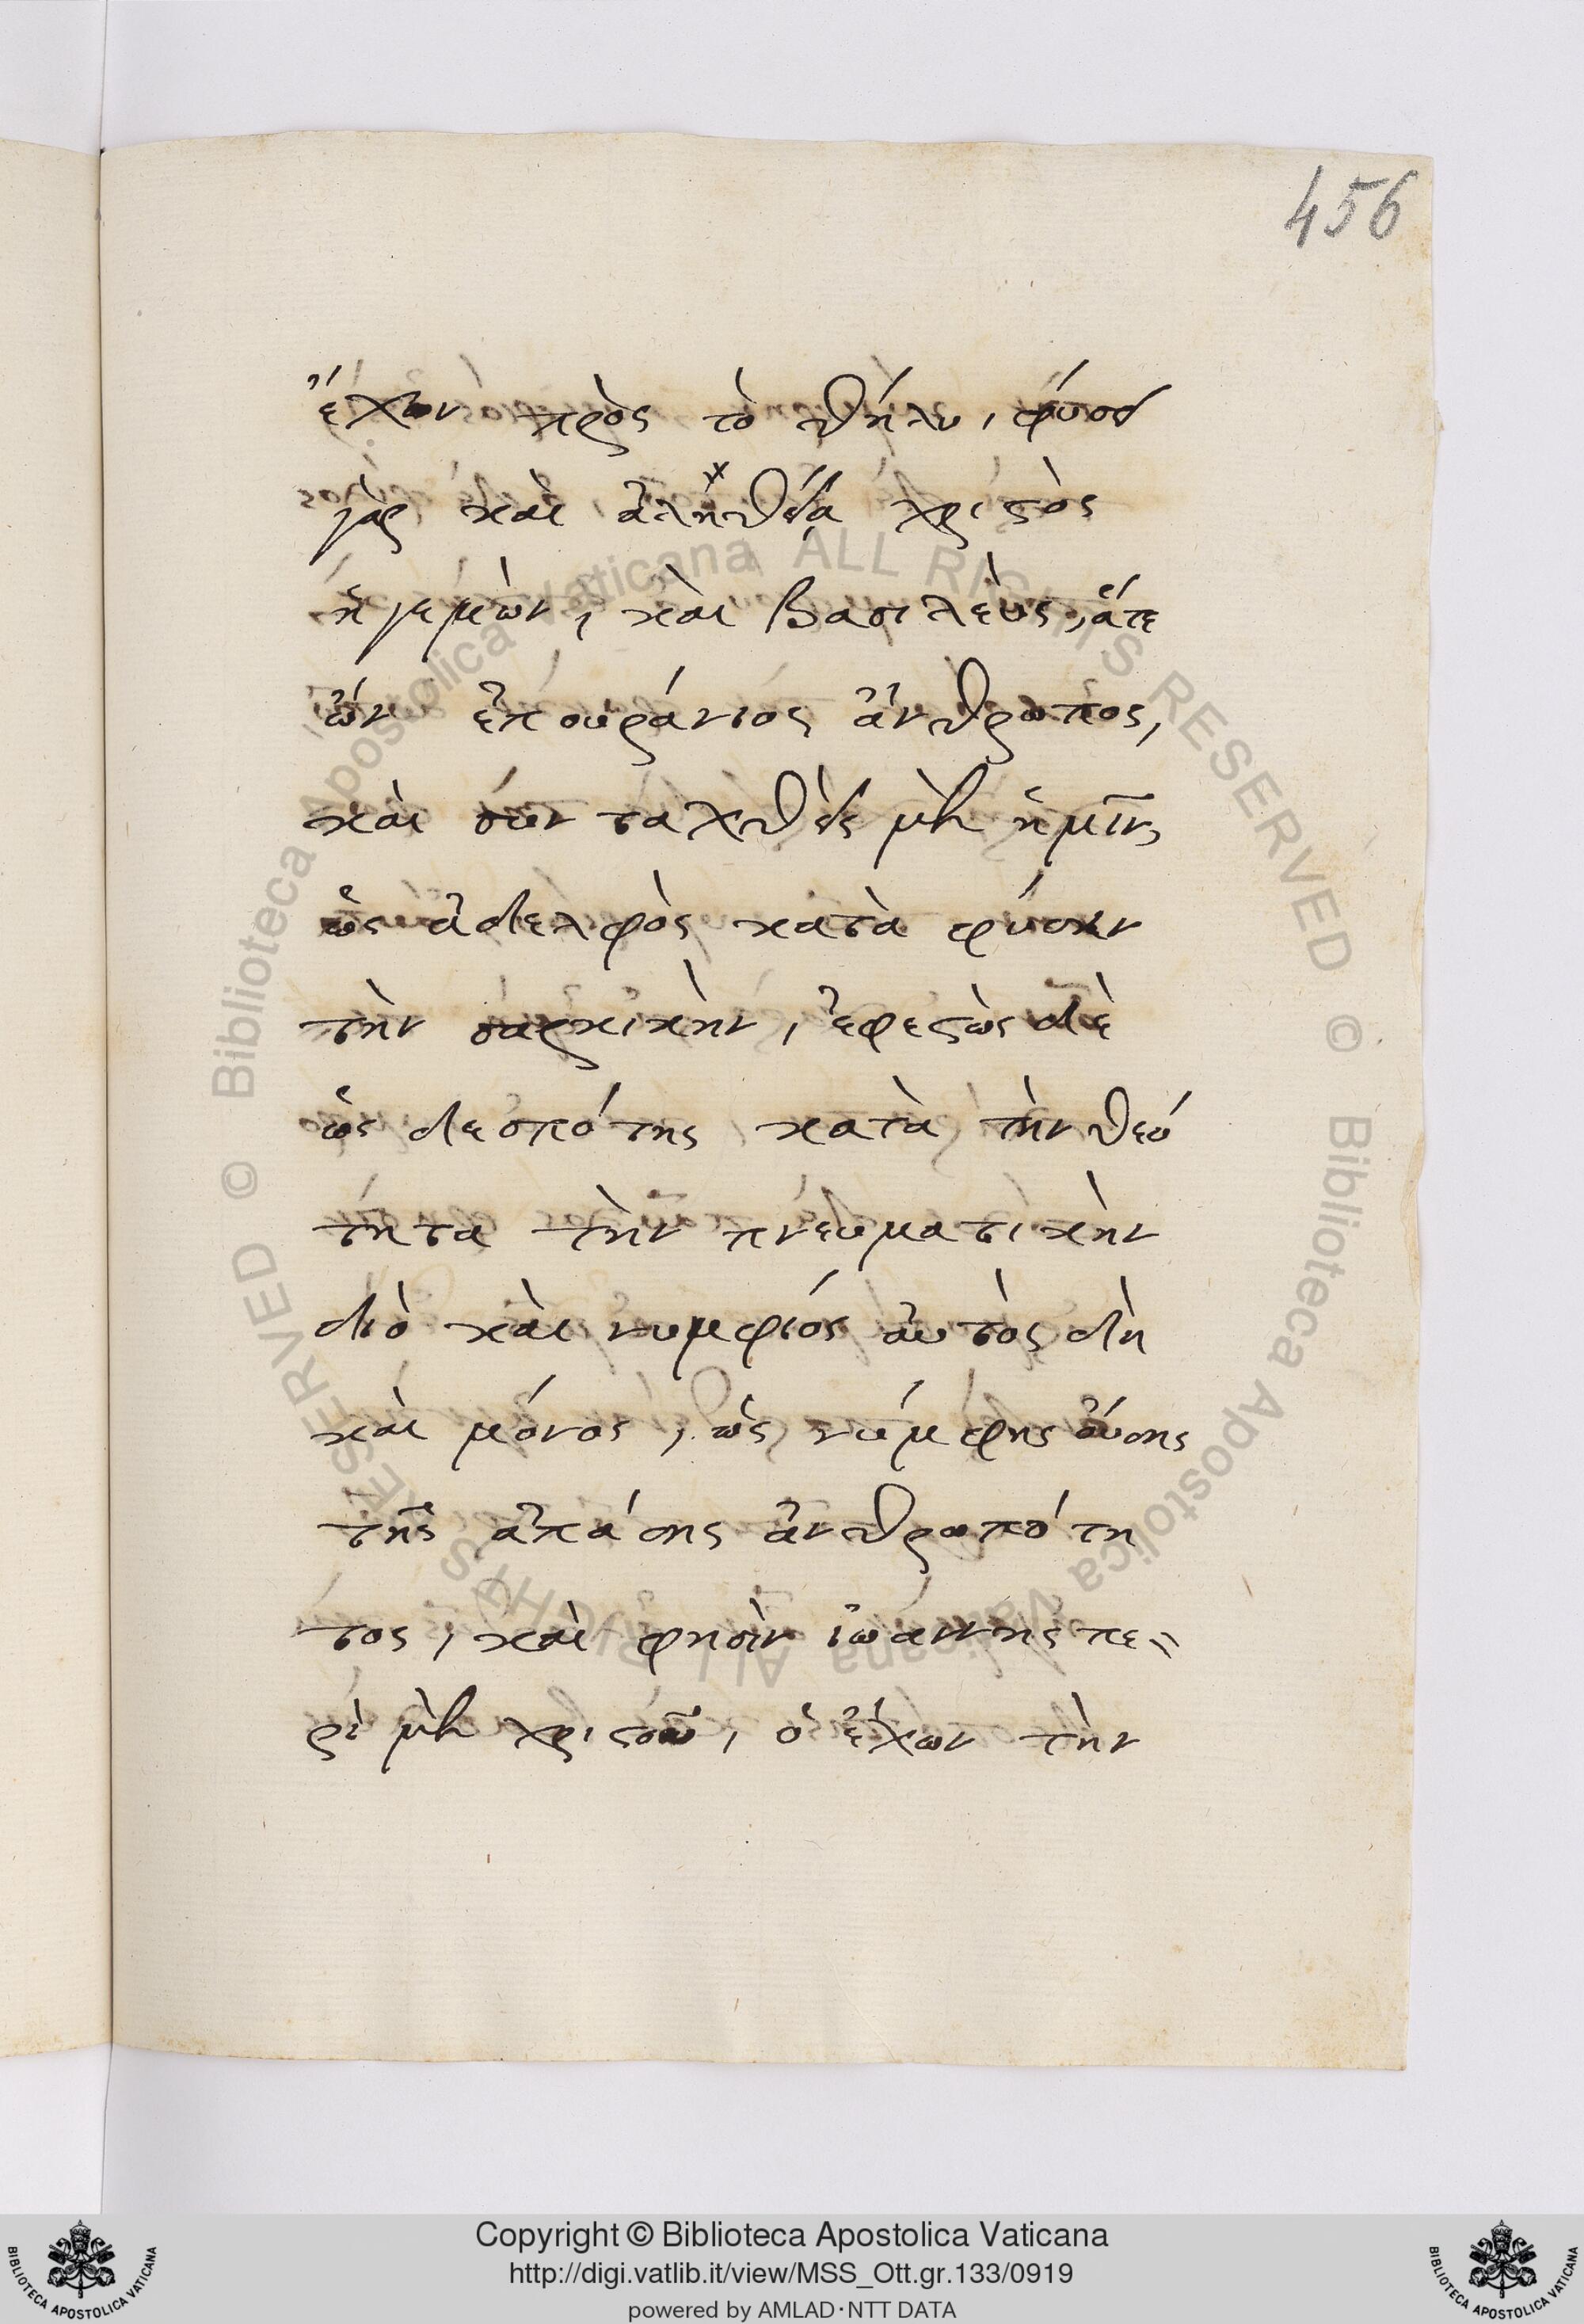 456
ἔχων πρὸς τὸ θῆλυ, φύσει
γὰρ καὶ ἀληθεία χριστὸς
ἡγεμὼν, καὶ βασιλεὺς, ἅτε
ὢν ἐπουράνιος ἄνθρωπος,
καὶ συνταχθεὶς μὲν ἡμῖν,
ὡς ἀδελφὸς κατὰ φύσιν
τὴν σαρκικὴν, ἐφεστὼς δὲ
ὡς δεσπότης κατὰ τὴν θεό
τητα τὴν πνευματικὴν
διὸ καὶ νυμφίος αὐτὸς δὴ
καὶ μόνος, ὡς νύμφης οὔσης
τῆς ἁπάσης ἀνθρωπότη
τος, καὶ φησὶν ἰωάννης πε
ρὶ μὲν χριστοῦ, ὁ ἔχων τὴν
© Biblioteca Apostolica Vaticana ALL RIGHTS RESERVED © Biblioteca Apostolica Vaticana ALL RIGHTS RESERVED
Copyright © Biblioteca Apostolica Vaticana
http://digi.vatlib.it/view/MSS_Ott.gr.133/0919
powered by AMLAD·NTT DATA
BIBLIOTECA APOSTOLICA VATICANA
BIBLIOTECA APOSTOLICA VATICANA